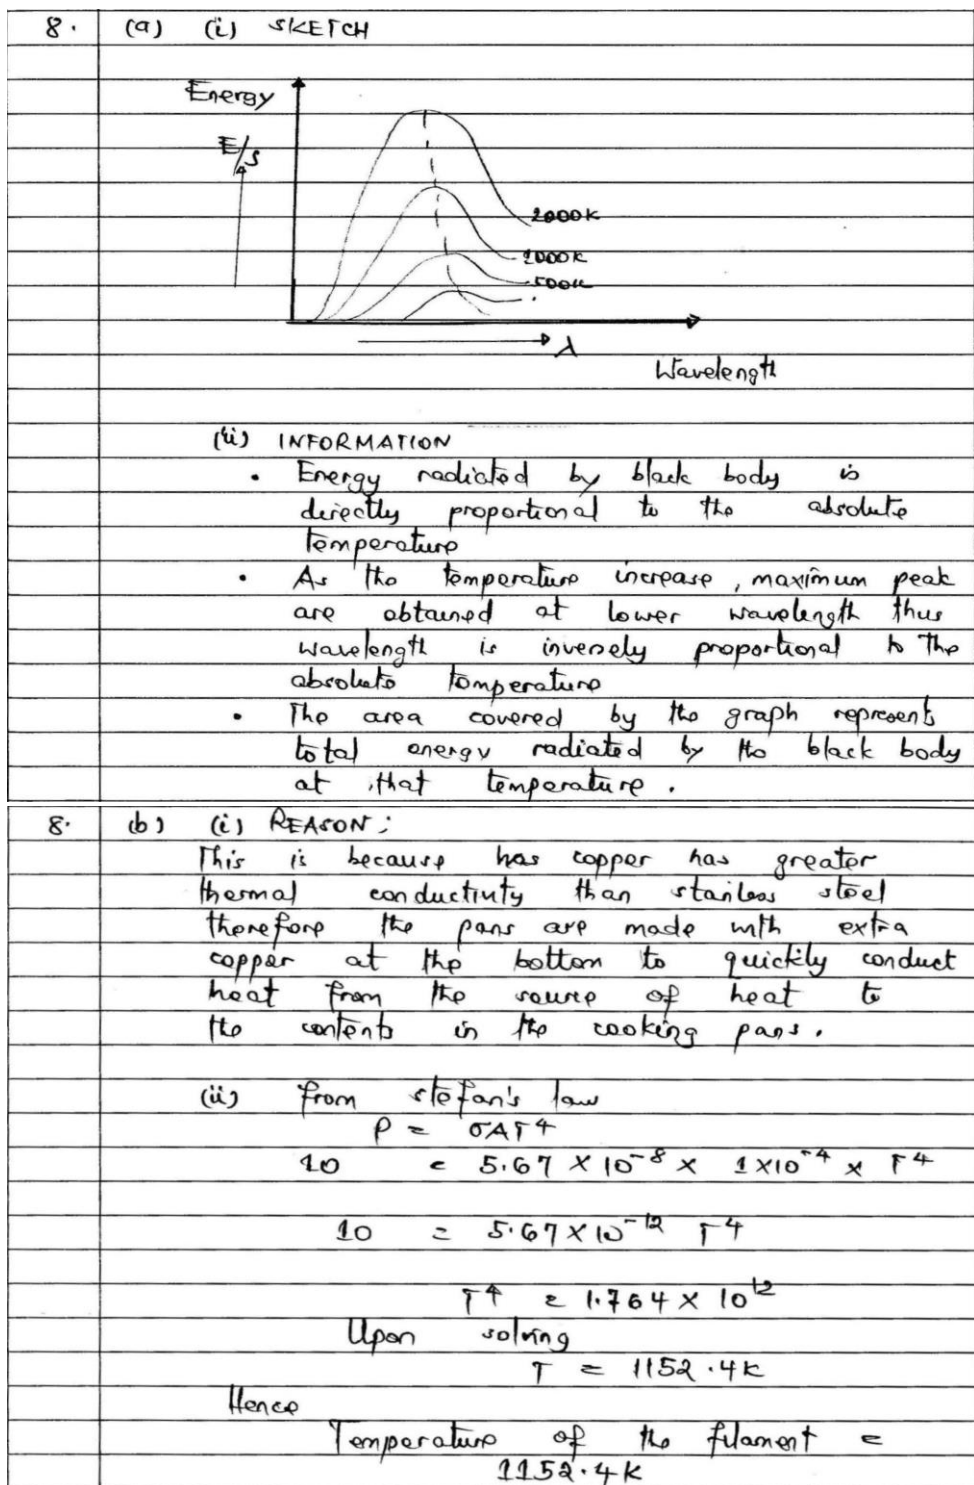 8. (a) (i) SKETCH
Energy
E/s
2000K
1000K
500K
λ
Wavelength
(ii) INFORMATION
• Energy radiated by black body is
directly proportional to the absolute
temperature
• As the temperature increase, maximum peak
are obtained at lower wavelength thus
wavelength is inversely proportional to the
absolute temperature
• The area covered by the graph represents
total energy radiated by the black body
at that temperature.
8. (b) (i) REASON;
This is because has copper has greater
thermal conductivity than stainless steel
therefore the pans are made with extra
copper at the bottom to quickily conduct
heat from the source of heat to
the contents in the cooking pans.
(ii) from stefan's law
P = σAT⁴
10 = 5.67 × 10⁻⁸ × 1×10⁻⁴ × T⁴
10 = 5.67 × 10⁻¹² T⁴
T⁴ = 1.764 × 10¹²
Upon solving
T = 1152.4K
Hence
Temperature of the filament =
1152.4K